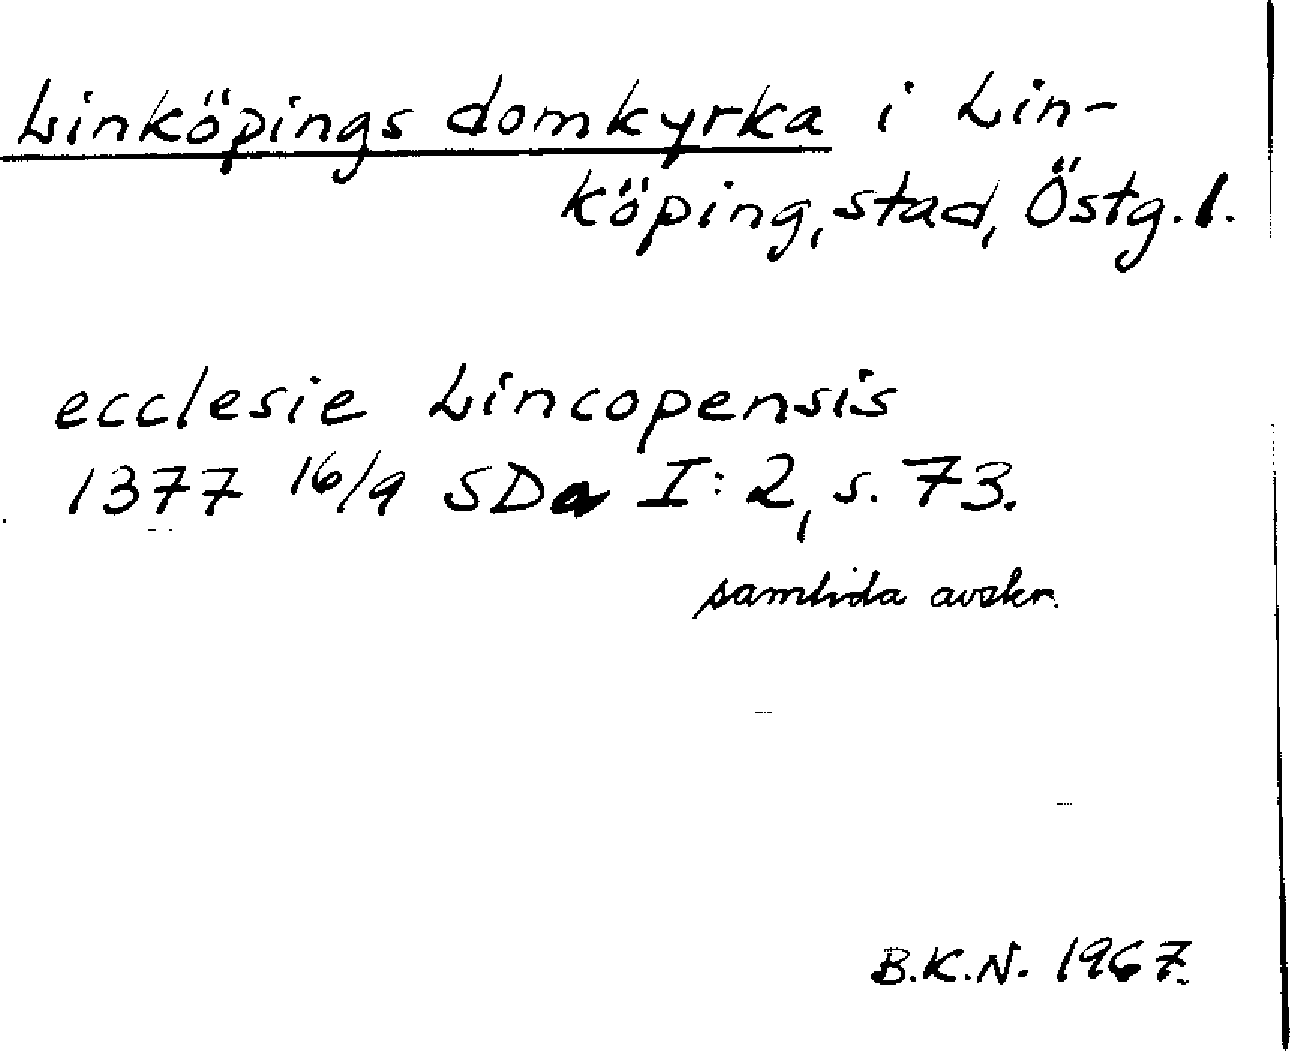 Linköpings domkyrka i Lin-
köping, stad, Östg. l.
ecclesie Lincopensis
1377 16/9 SDa I:2, s. 73.
samtida avskr.
B.K.N. 1967.